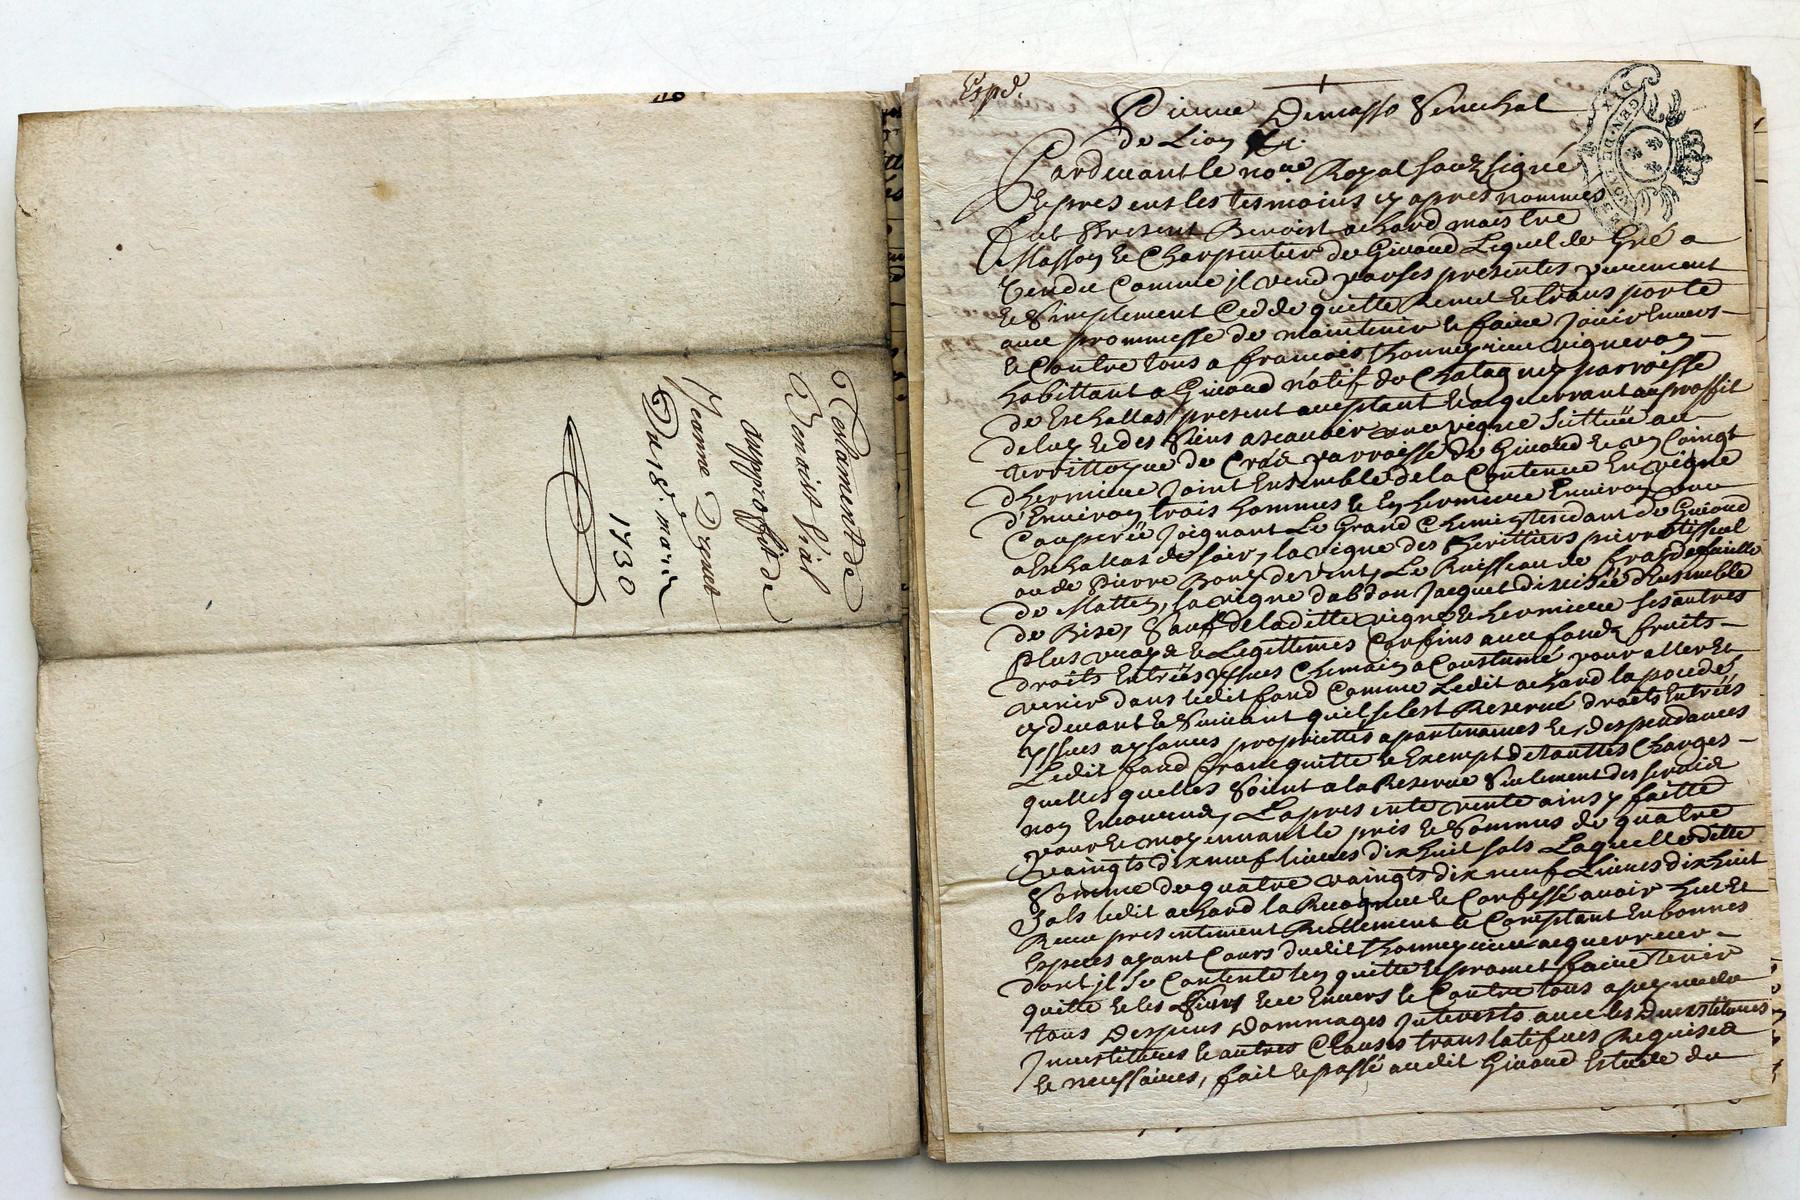 Testament de
Benoist Vial
aupproffit de
Jeanne
Du 18e. mars
1730
Expé.
Pierre Demasso Senechal
de Lion
Pardevant le nore. Royal Soubz signé
Et presens les tesmoins cy apres nommes
fut Present Benoist achard maistre
Masson et Charpentier de Givord Lequel de Gré a
Vendu Comme jl vend par ses presentes purement
et Simplement Cedde quitte Remet et transporte
avec prommesse de maintenir et faire Jouir Envers
et Contre tous a francois vigneron
habittant a Givord natif de Chatagney parroisse
de Eschallas present aceptant et acquerrant au proffit
de luy et des Siens ascauoir une vigne Sittuée au
territtoyre de parroisse de Givord et un Coingt
d'hermiere Joint Ensemble de la Contenue En vigne
d'Environ trois hommes et En hermiere Environ une
Couperée Joignant Le Grand Chemin tendant de Givord
a Eschallas de soir, la vigne des herittiers pierre
ou de Pierre Bony de vent, Le Ruisseau de
de Mattin, la vigne d'abdon Jacquet divisée d'Ensemble
de Bise, Sauf de laditte vigne et hermiere ses autres
plus vrays et Legittimes Confins avec fondz fruits
droits Entrées yssues Chemain aCoustumé pour aller et
venir dans ledit fond Comme Ledit achard la possdé
cy devant et Suivant quil se lest Reservé droits Entrées
yssues aysances propriettes apartenances et despendances
Ledit fond franc quitte et Exempt de touttes Charges
quelles quelles Soient a la Reserve Seulement des servis
non Encourus, La presente vente ainsy faitte
pour et moyennant le pris et Somme de quatre
vaingts dix neuf livres dix huit sols Laquelle ditte
Somme de quatre vaingts dix neuf Livres dix huit
Sols ledit achard la Recognue et Confessé avoir heu et
Receu presentement Reellement et Comptant En bonnes
Especes ayant Cours dudit acquerreur
dont jl se Contente len quitte et promet faire tenir
quitte et les Siens Envers et Contre tous a peyne de
tous despens dommages Interests avec les
Investitures et autres Clauses translatifves Requises
et necessaires, fait et passé audit Givord Estude du